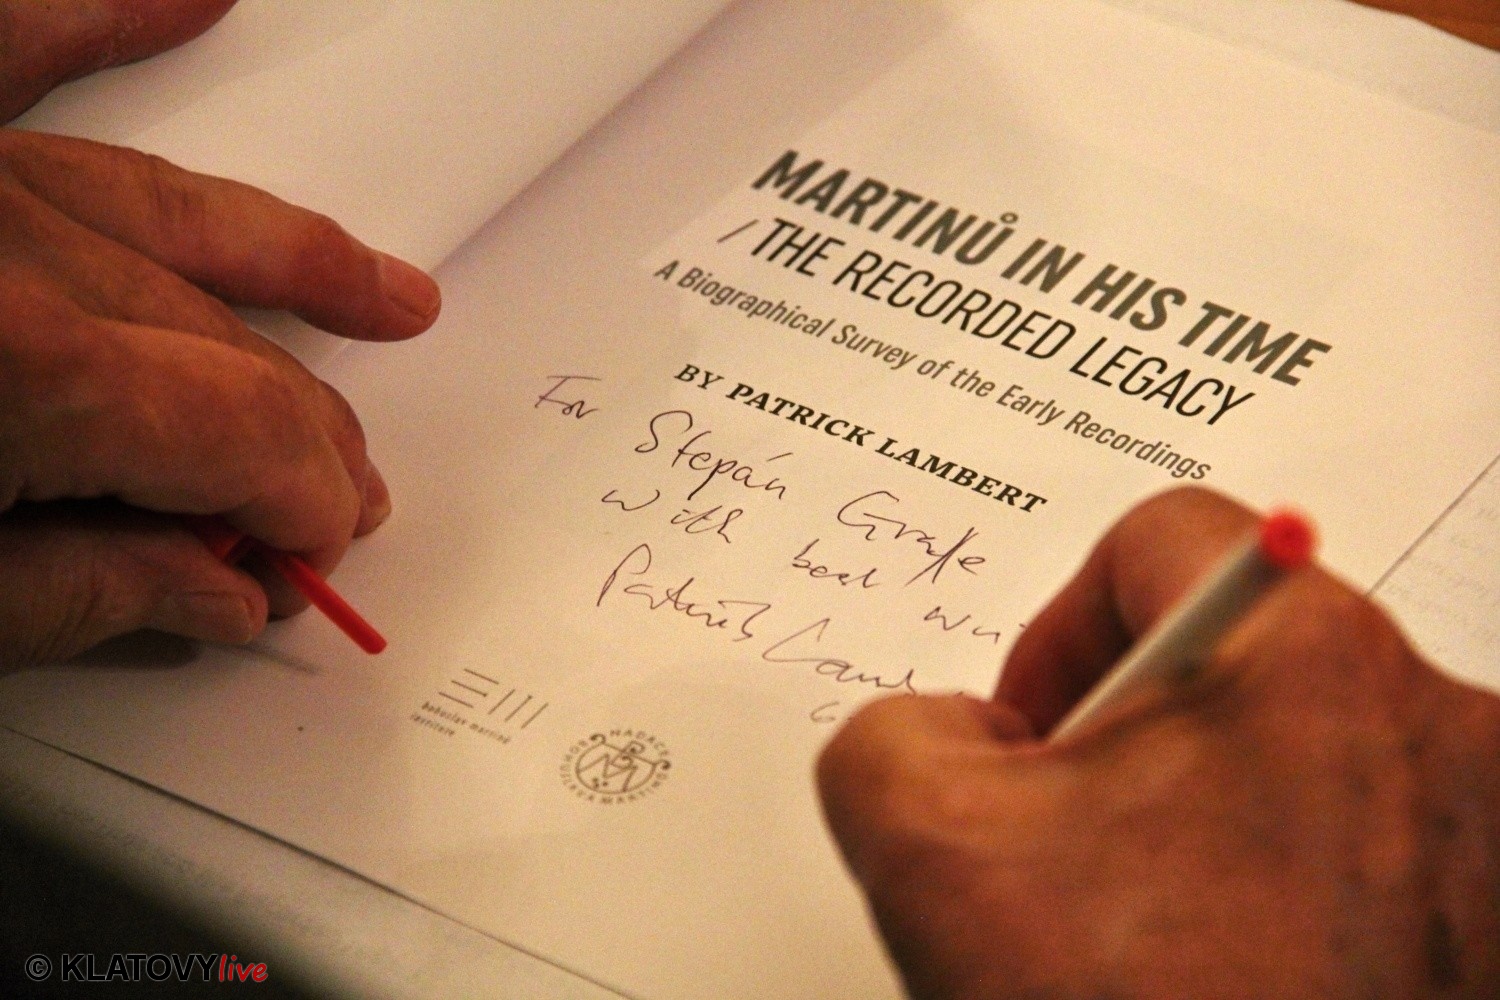 MARTINŮ IN HIS TIME
/ THE RECORDED LEGACY
A Biographical Survey of the Early Recordings
BY PATRICK LAMBERT
For Stepán
with best
Patrick
bohuslav martinů
institute
NADACE BOHUSLAVA MARTINŮ
© KLATOVYlive